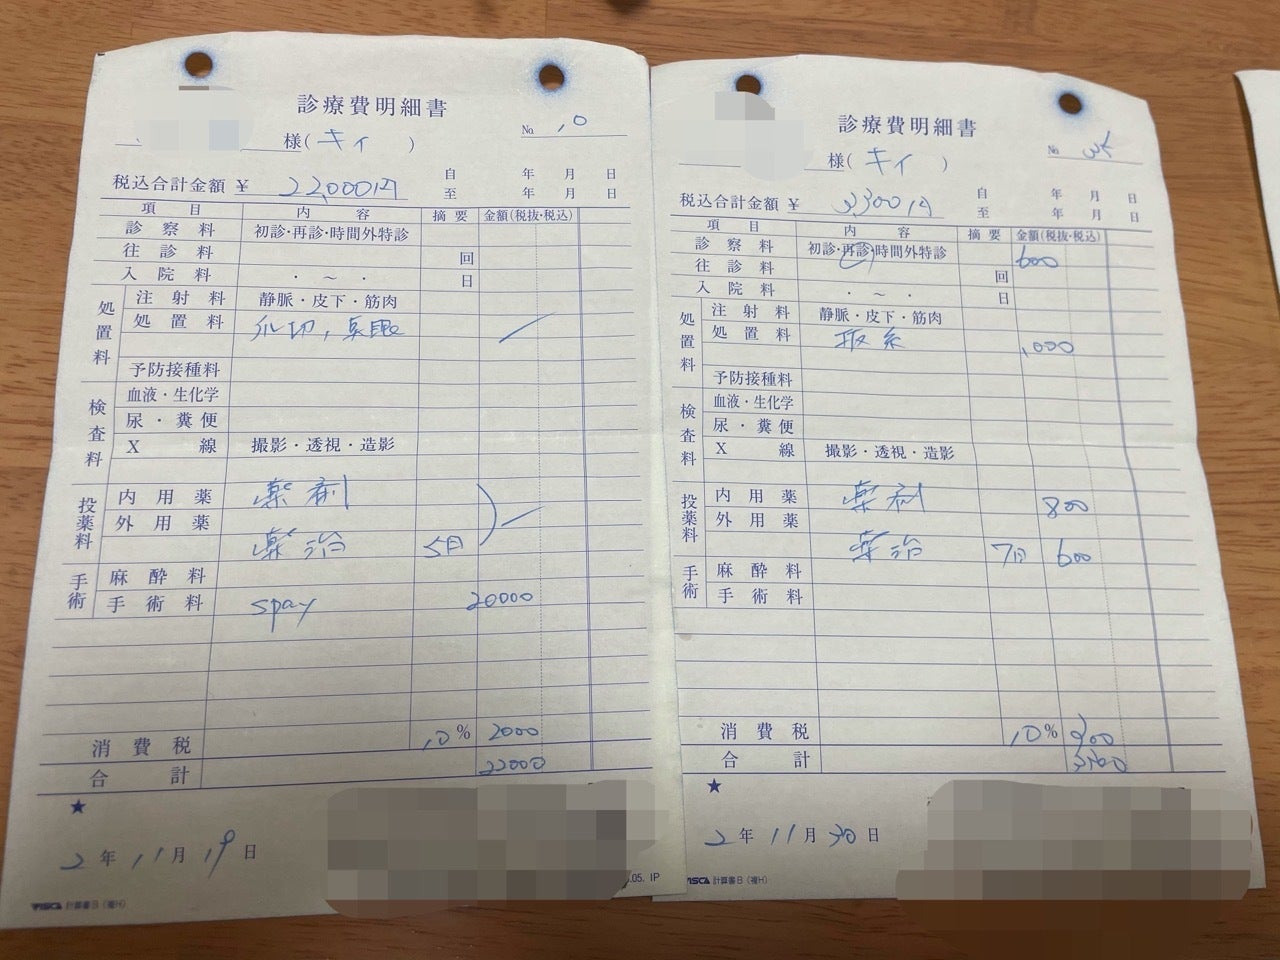 診療費明細書
様(キィ)
No. 10
税込合計金額 ¥ 22,000円
自 年 月 日
至 年 月 日
項目 内容 摘要 金額(税抜・税込)
診察料 初診・再診・時間外特診
往診料 回
入院料 ・ ~ ・ 日
処置料
注射料 静脈・皮下・筋肉
処置料 爪切,
予防接種料
検査料
血液・生化学
尿・糞便
X線 撮影・透視・造影
投薬料
内用薬 薬剤
外用薬
薬治 5日
手術
麻酔料
手術料 spay 20000
消費税 10% 2000
合計 22000
★
2年 11月 19日
VISCA 計算書B(複H)
.05. IP
診療費明細書
様(キィ)
No.
税込合計金額 ¥ 3,300円
自 年 月 日
至 年 月 日
項目 内容 摘要 金額(税抜・税込)
診察料 初診・再診・時間外特診 600
往診料 回
入院料 ・ ~ ・ 日
処置料
注射料 静脈・皮下・筋肉
処置料 抜糸 1000
予防接種料
検査料
血液・生化学
尿・糞便
X線 撮影・透視・造影
投薬料
内用薬 薬剤 800
外用薬
薬治 7日 600
手術
麻酔料
手術料
消費税 10% 300
合計 3300
★
2年 11月 30日
VISCA 計算書B(複H)